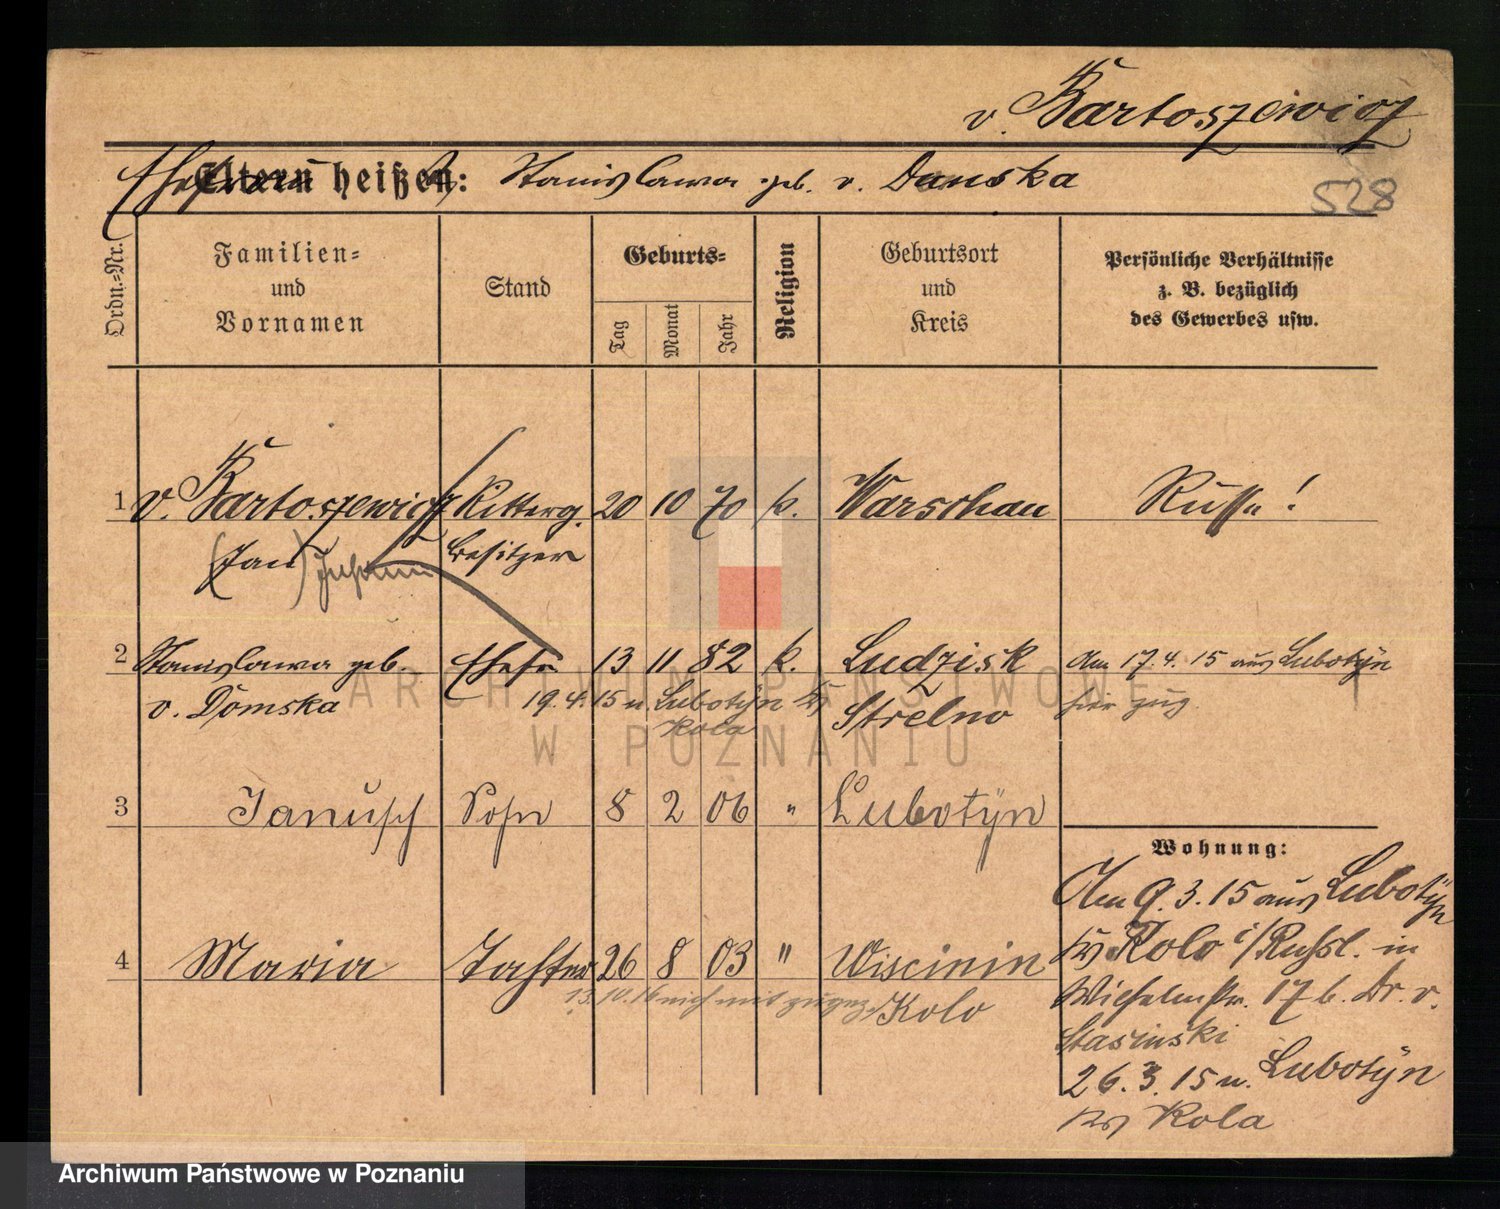 v. Bartoszewicz
Ehefrau heißen: Stanislawa geb. v. Domska
528
Ordn.-Nr.
Familien-
und
Vornamen
Stand
Geburts-
Tag
Monat
Jahr
Religion
Geburtsort
und
Kreis
Persönliche Verhältnisse
z. B. bezüglich
des Gewerbes usw.
1 v. Bartoszewicz Ritterg. 20 10 70 k. Warschau Russe!
(Jan) Johann besitzer
2 Stanislawa geb. Ehefr 13 11 82 k. Ludzisk Am 17.4.15 aus Lubotÿn
v. Domska 19.4.15 n. Lubotÿn Kr Strelno hier zug.
Kola
3 Janusch Sohn 8 2 06 " Lubotÿn
Wohnung:
Am 9.3.15 aus Lubotÿn
4 Maria Tochter 26 8 03 " Wiscinin Kr Kolo i/Russl. in
13.10.16 nich mit zugez. Kolo Wilhelmstr. 17 b. Dr. v.
Stasinski
26.3.15 n. Lubotÿn
Kr Kola
ARCHIWUM PAŃSTWOWE
W POZNANIU
Archiwum Państwowe w Poznaniu